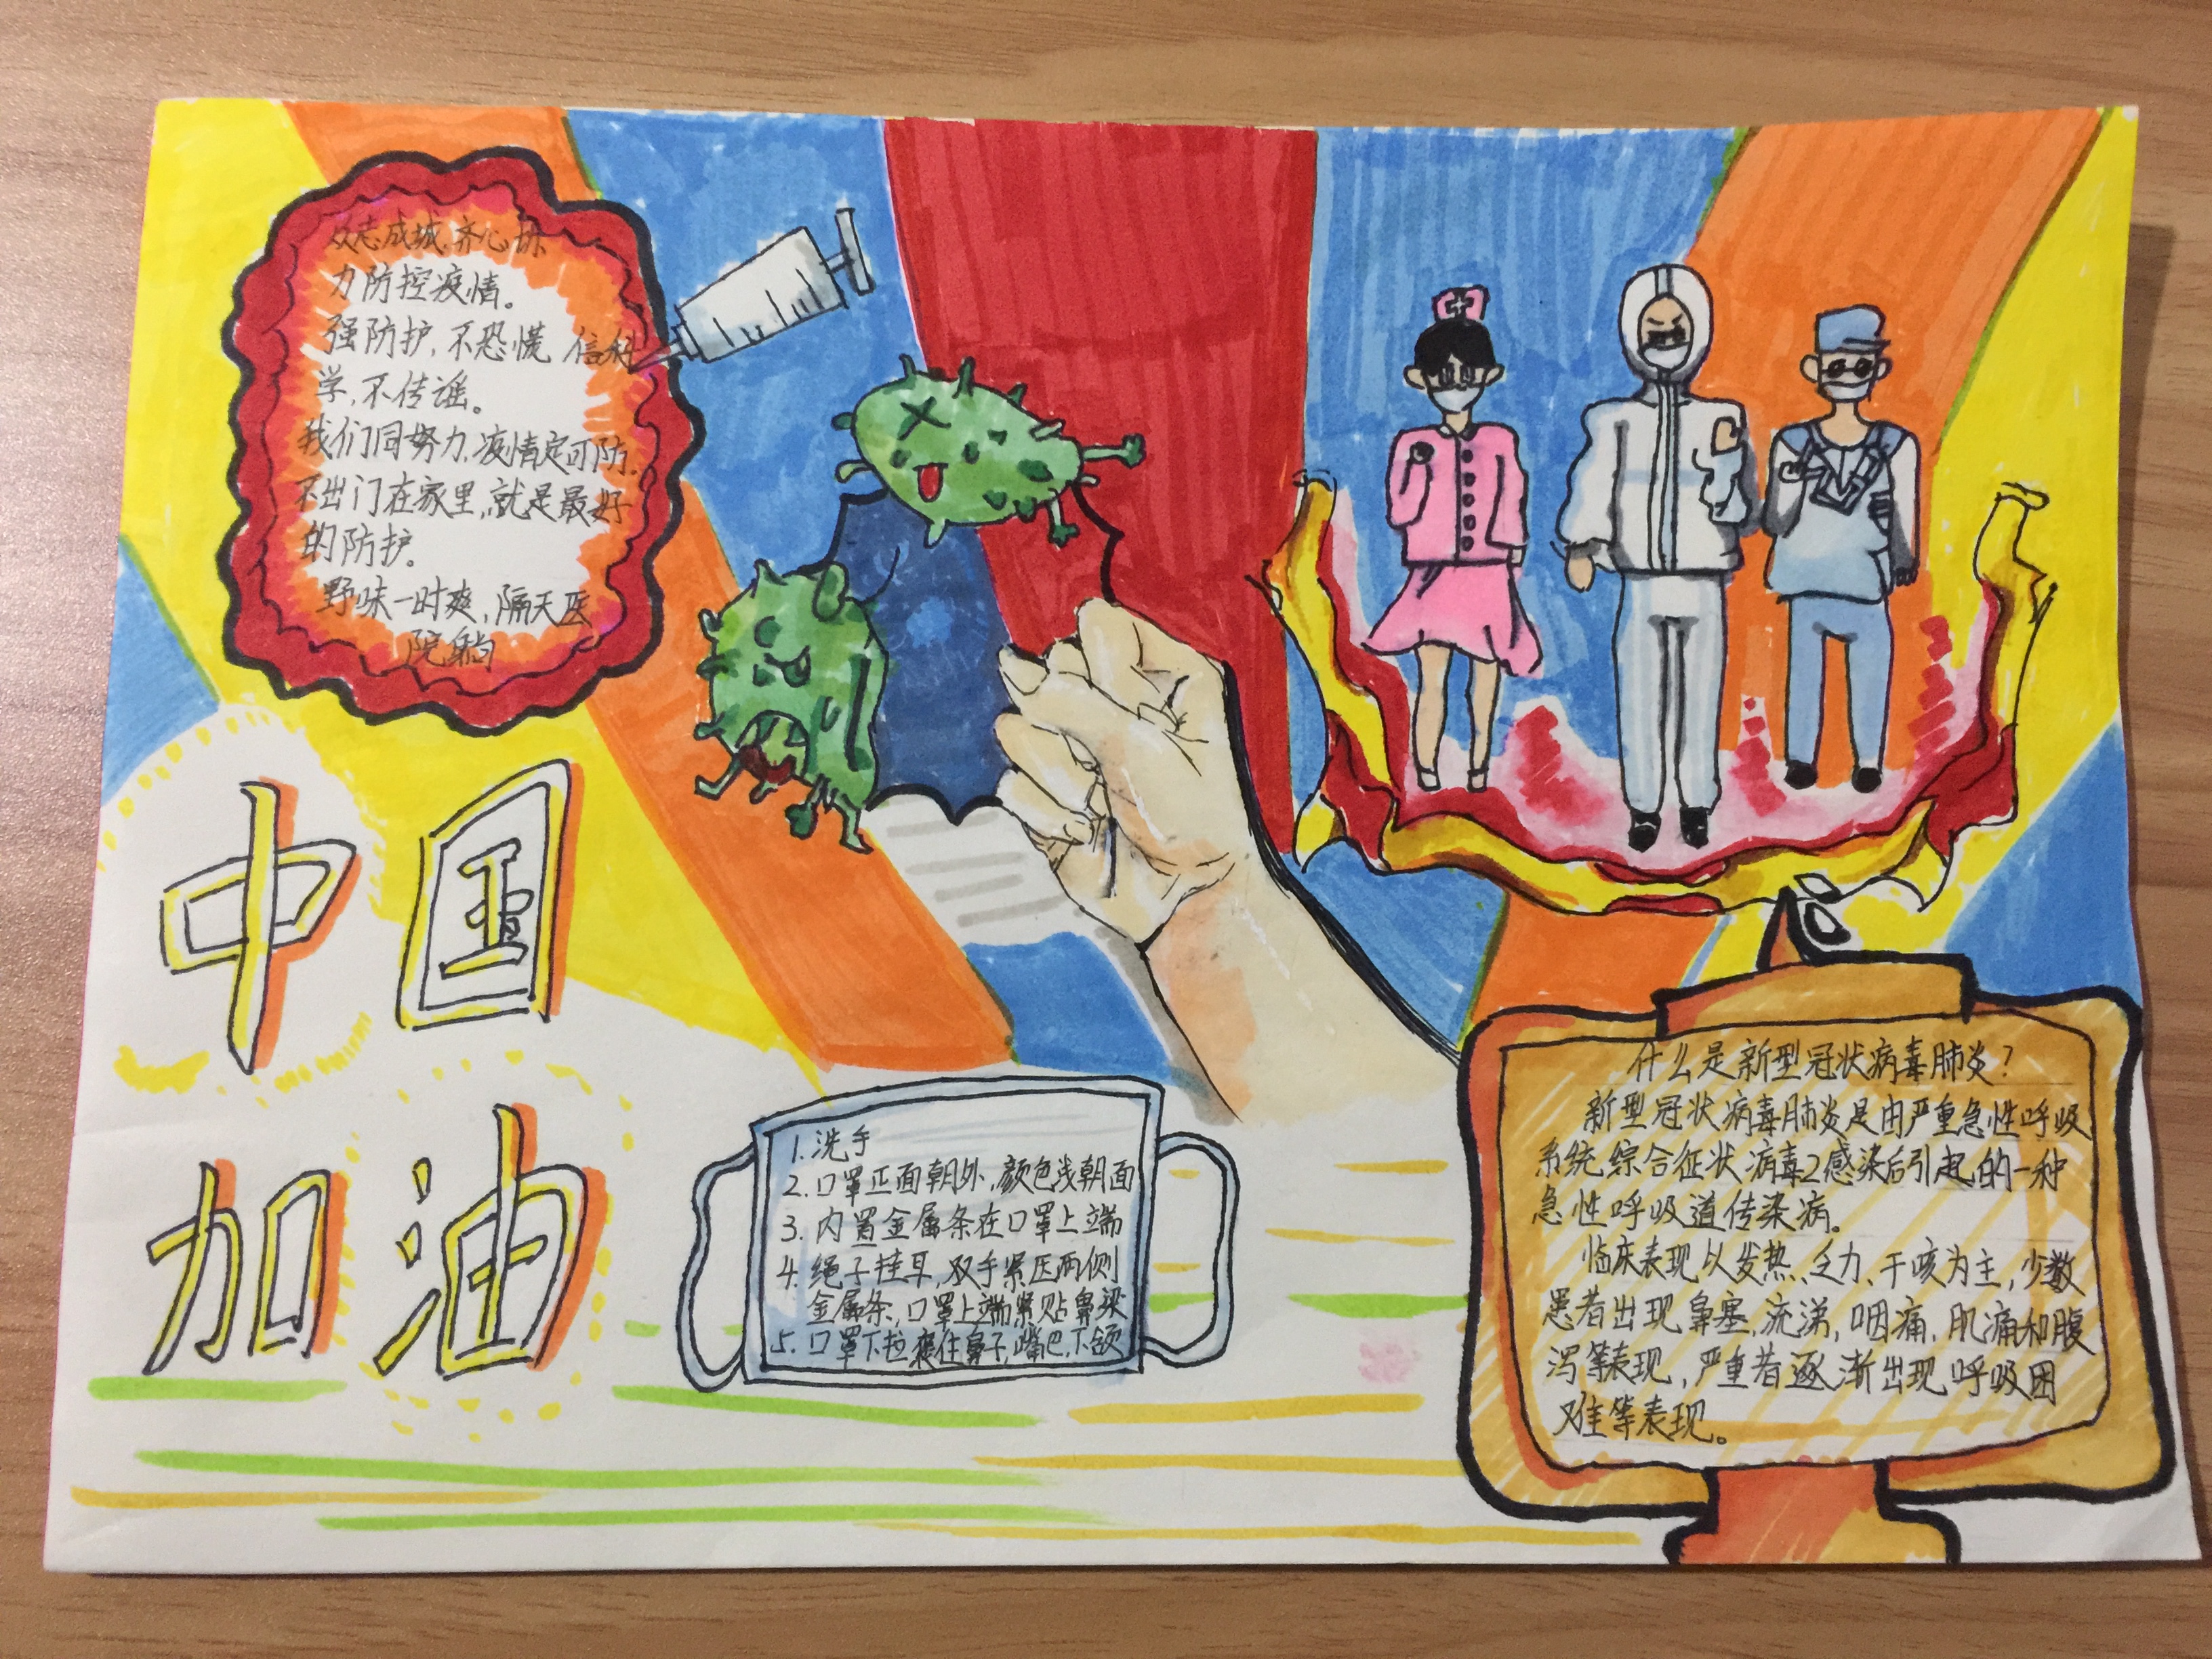 众志成城,齐心协
力防控疫情。
强防护,不恐慌 信科
学,不传谣。
我们同努力,疫情定可防.
不出门在家里,就是最好
的防护.
野味一时爽,隔天医
院躺
中国
加油
1.洗手
2.口罩正面朝外,颜色浅朝面
3.内置金属条在口罩上端
4.绳子挂耳,双手紧压两侧
金属条,口罩上端紧贴鼻梁
5.口罩下拉 住鼻子,嘴巴,下颌
什么是新型冠状病毒肺炎?
新型冠状病毒肺炎是由严重急性呼吸
系统综合征状病毒2感染后引起的一种
急性呼吸道传染病。
临床表现以发热、乏力、干咳为主,少数
患者出现鼻塞,流涕,咽痛,肌痛和腹
泻等表现,严重者逐渐出现呼吸困
难等表现。